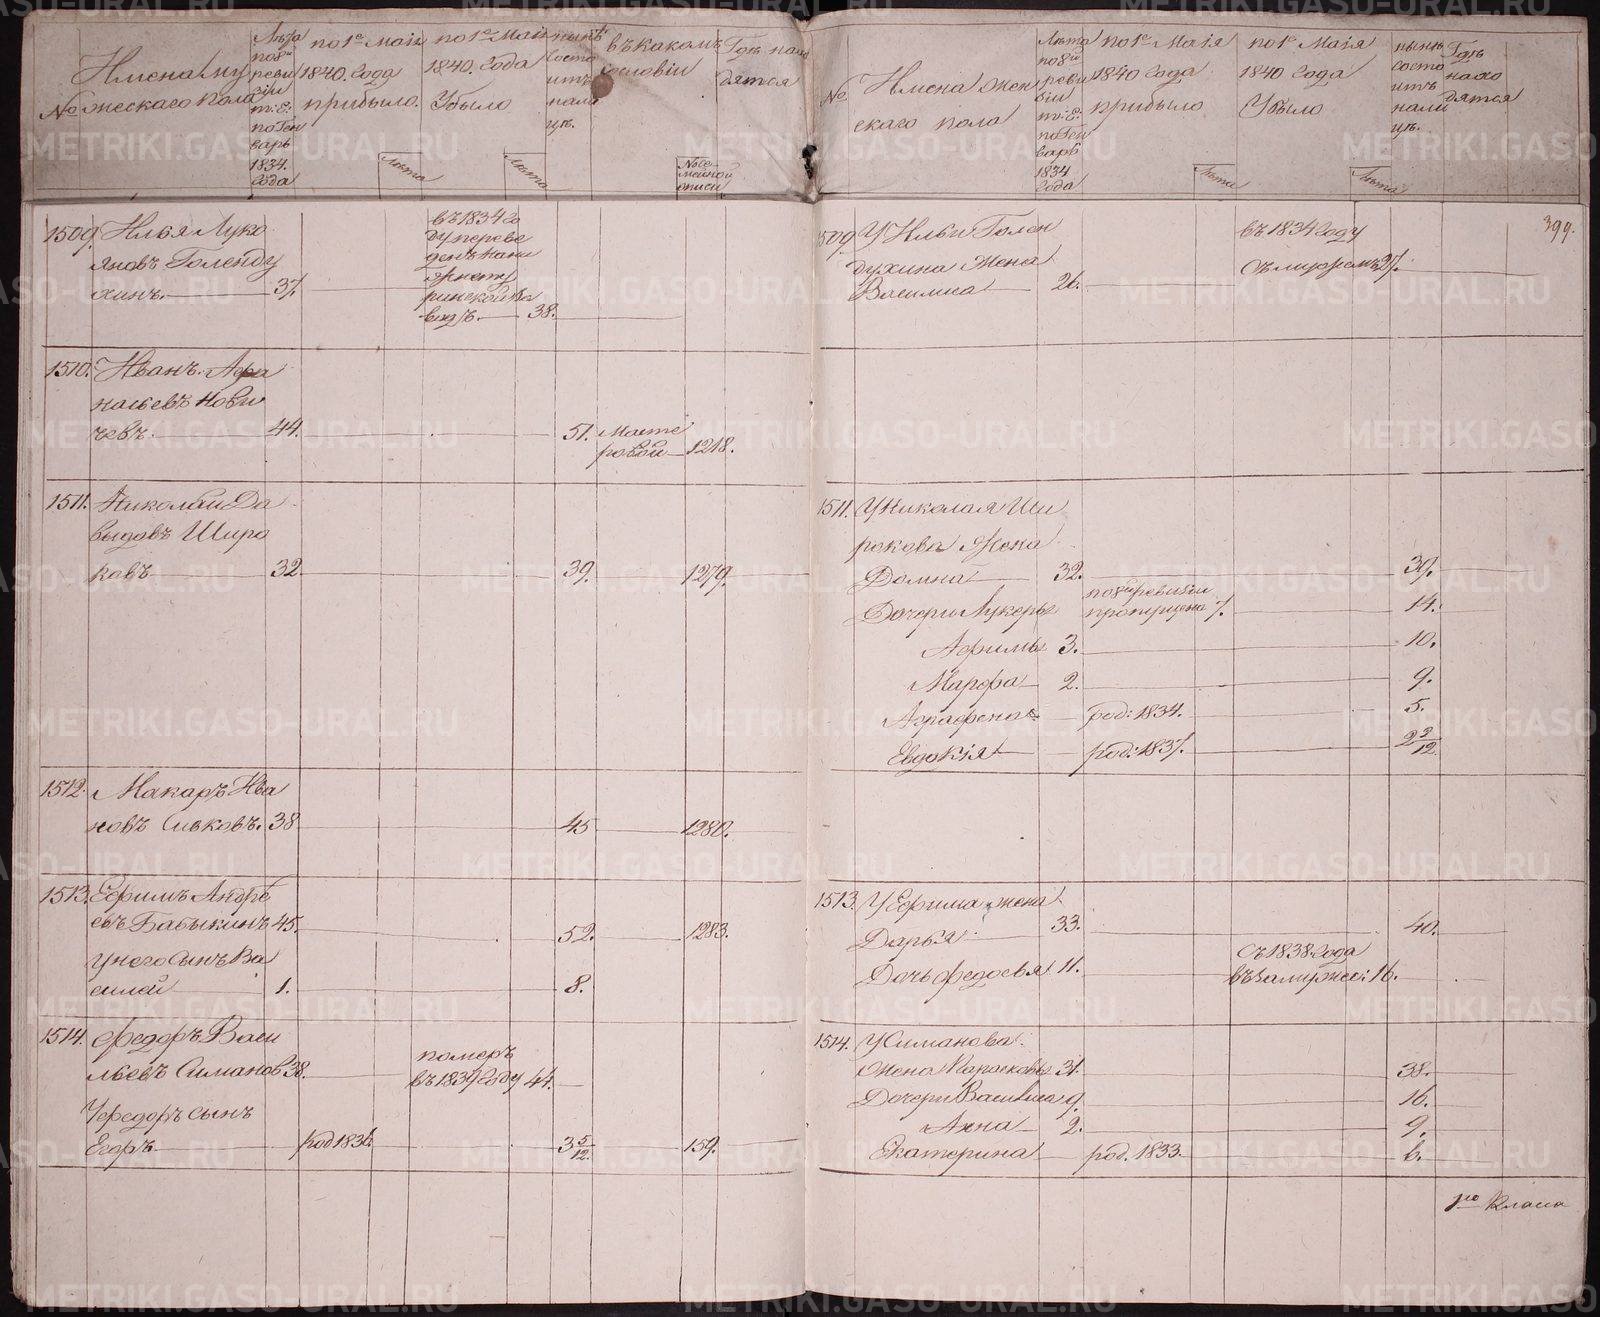 № Имена му
жескаго пола
Лѣта
по 8й
реви
зіи
т: е:
по Ген
варь
1834.
Года
по 1е Маія
1840. Года
прибыло.
Лѣта
по 1е Маія
1840. Года
Убыло
Лѣта
нынѣ
состо
итъ
нали
цѣ.
въ какомъ
сословіи
№ се
мейной
описи
Гдѣ нахо
дятся
1509. Илья Луко
яновъ Голенду
хинъ. 37.
въ 1834 го
ду переве
денъ
38.
1510. Иванъ Афа
насьевъ Нови
чевъ. 44. 51. Масте
ровой 1218.
1511. Николай Да
выдовъ Широ
ковъ 32. 39. 1279.
1512. Макаръ Ива
новъ Сивковъ. 38 45 1280.
1513. Ефимъ Андре
евъ Бабыкинъ 45. 52. 1283.
У него сынъ Ва
силей 1. 8.
1514. Федоръ Васи
льевъ Симанов 38. померъ
въ 1839 году 44.
У Федоръ сынъ
Егоръ. род 1836. 3 5/12. 159.
№ Имена жен
скаго пола
Лѣта
по 8й
реви
зіи
т: е:
по Ген
варь
1834
Года
по 1е Маія
1840 года
прибыло
Лѣта
по 1е Маія
1840 года
Убыло
Лѣта
нынѣ
состо
итъ
нали
цѣ.
Гдѣ
нахо
дятся
399.
1509. У Ильи Голен
духина Жена
Василиса 26.
въ 1834 Году
съ мужемъ 27.
1511. У Николая Ши
рокова Жена
Домна 32. 39.
Дочери Лукерья по 8й ревизіи
пропущена 7. 14.
Афимья 3. 10.
Марфа 2. 9.
Аграфена род: 1834. 5.
Евдокія род: 1837. 2 9/12
1513. У Ефима жена
Дарья 33. 40.
Дочь Федосья 11. Съ 1838. Года
въ замужес: 16.
1514. У Симанова
Жена Парасковья 31. 38.
Дочери Василиса 9. 16.
Анна 2. 9.
Екатерина род. 1833. 6.
1го Класа
METRIKI.GASO-URAL.RU